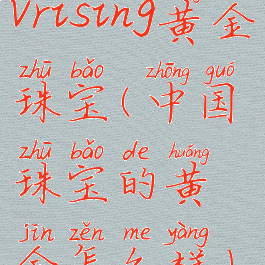 vrising黄金
zhū bǎo zhōng guó
珠宝(中国
zhū bǎo de huáng
珠宝的黄
jīn zěn me yàng
金怎么样)